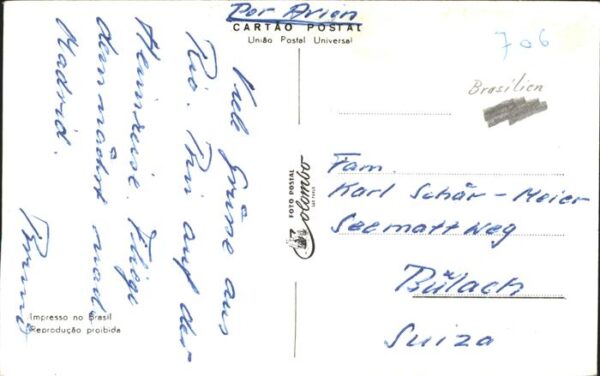 Por Avion
CARTÃO POSTAL
União Postal Universal
706
Brasilien
Viele Grüsse aus
Rio. Bin auf der
Heimreise. Fliege
demnächst nach
Madrid.
Bruno
FOTO POSTAL
Colombo
Fam.
Karl Schär-Meier
Seemattweg
Bülach
Suiza
Impresso no Brasil
Reprodução proibida